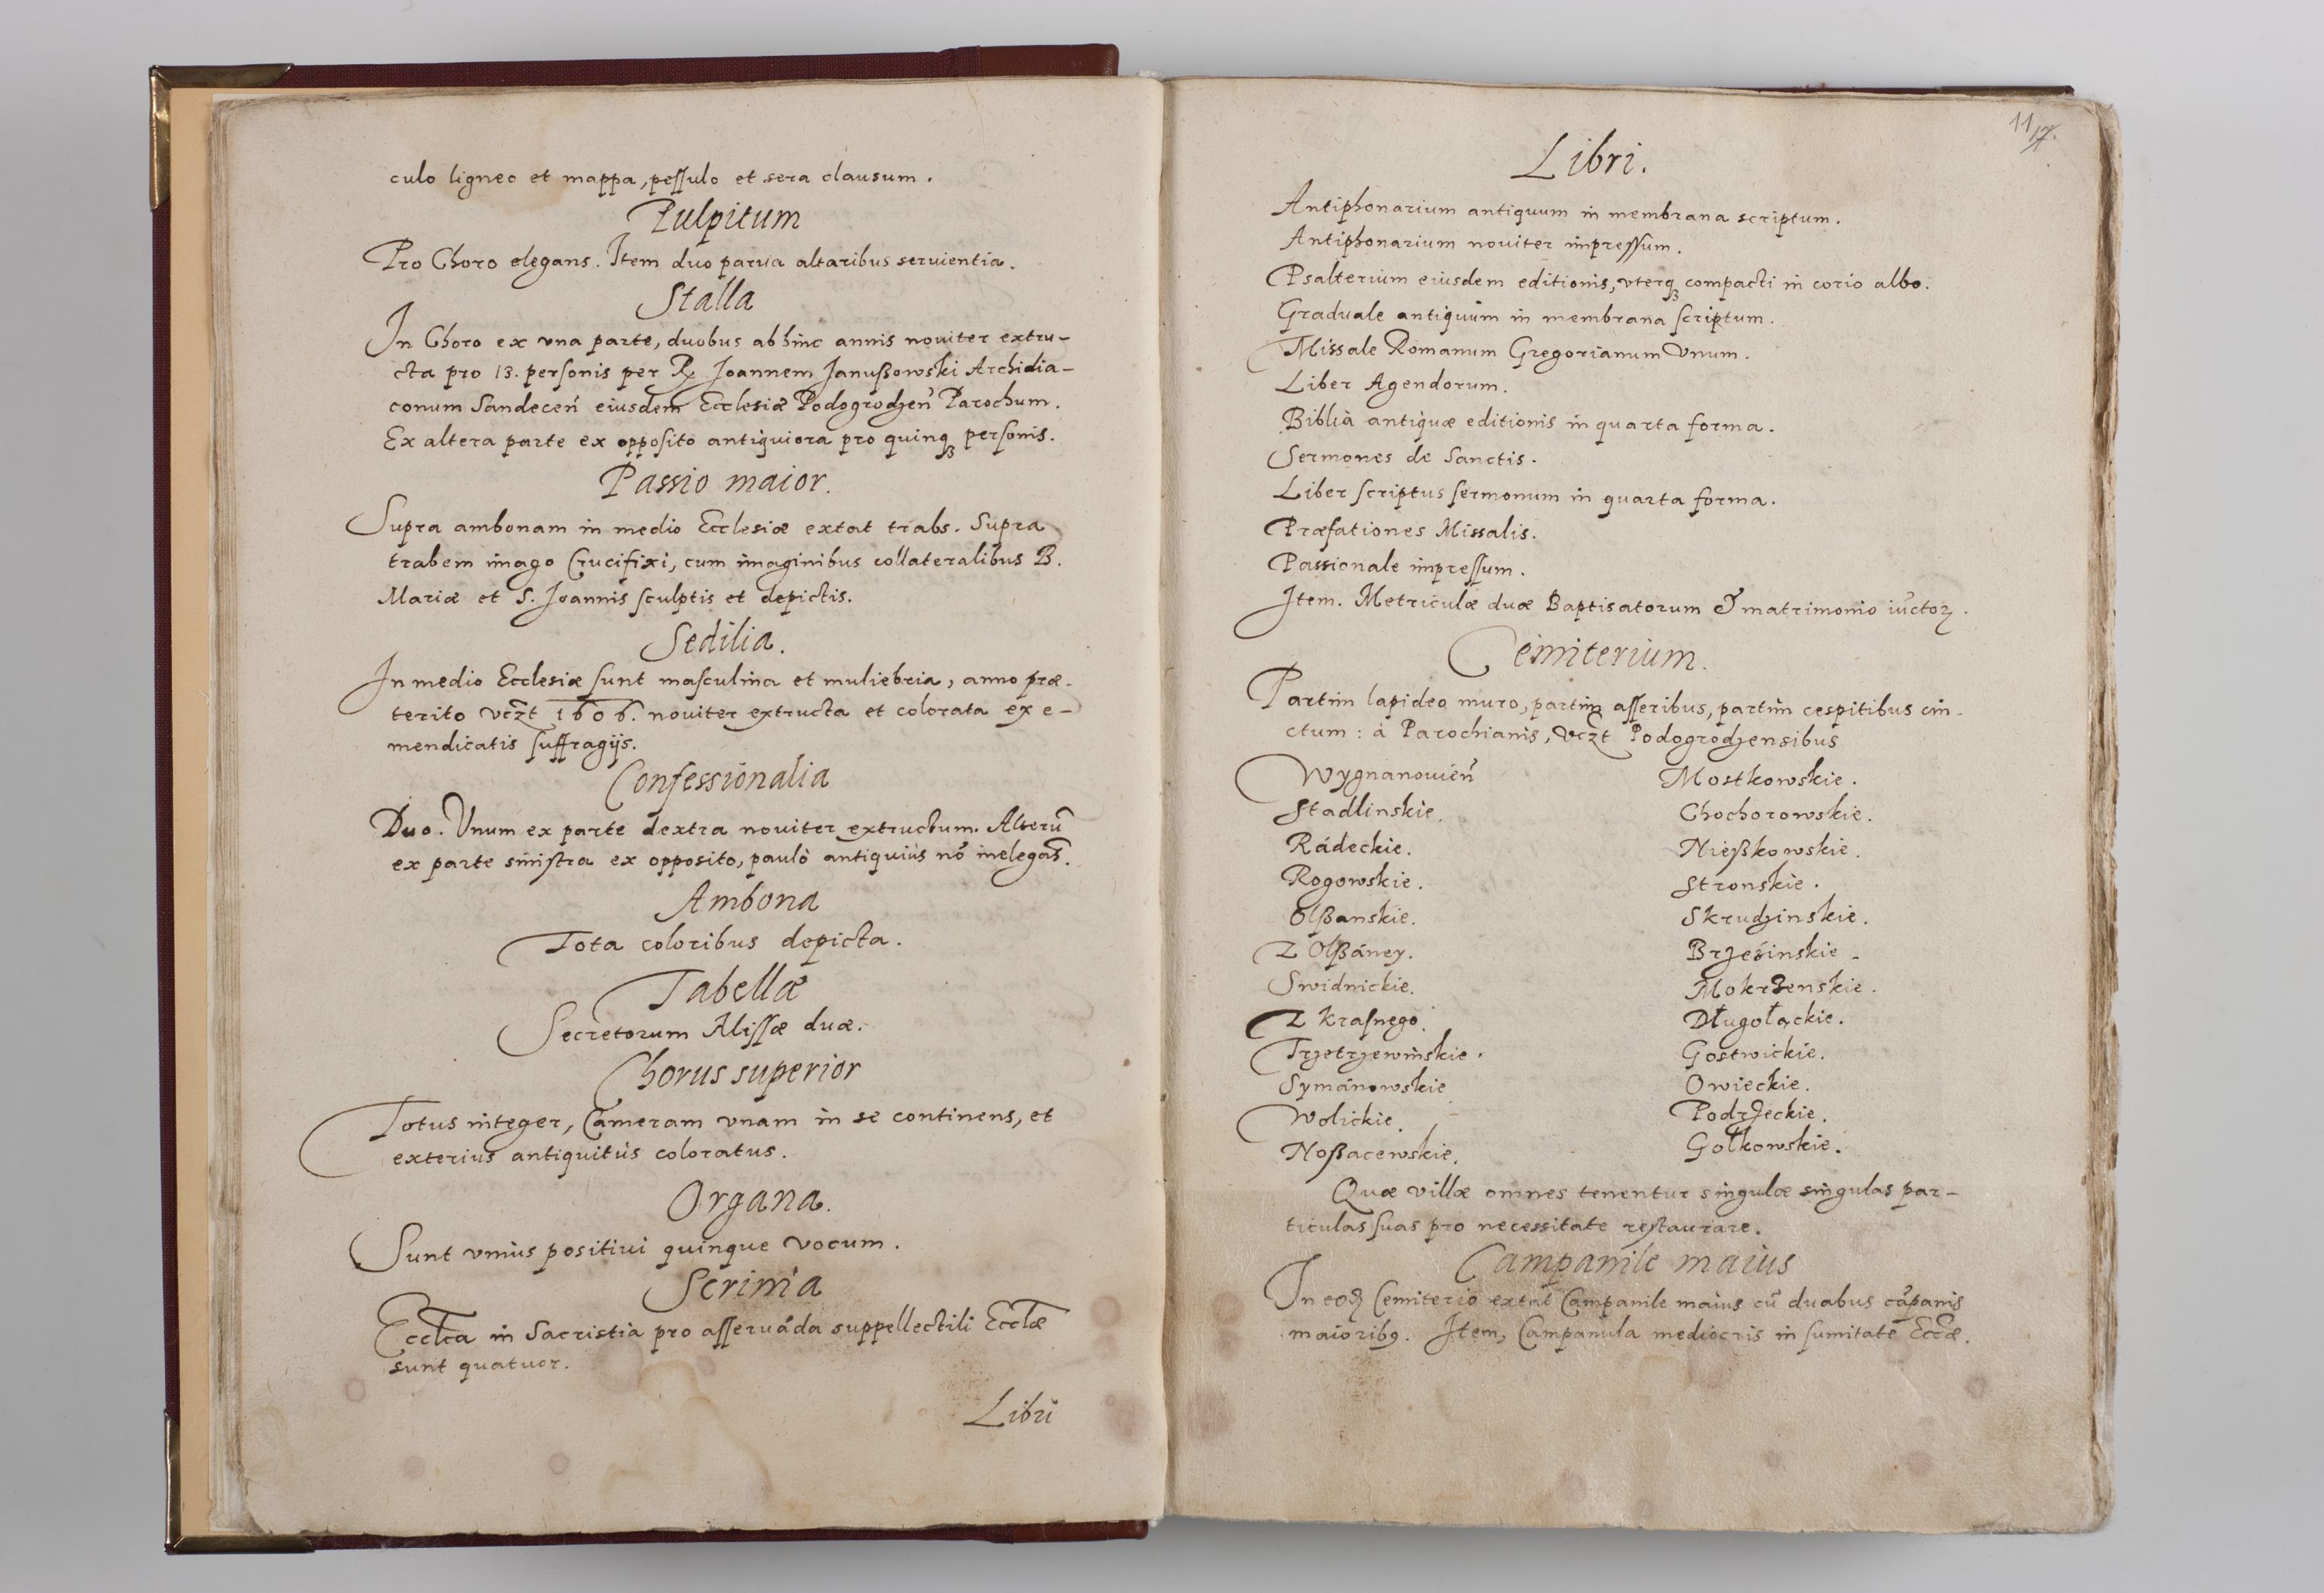 culo ligneo et mappa, peſſulo et sera clausum.
Pulpitum
Pro Choro elegans. Item duo parva altaribus seruientia.
Stalla
In Choro ex vna parte, duobus abhinc annis nouiter extru-
cta pro 13. perſonis per R. Joannem Janußowski Archidia-
conum Sandeceñ eiusdem Ecclesiæ Podogrodzeñ Parochum.
Ex altera parte ex opposito antiquiora pro quinqꝫ perſonis.
Passio maior.
Supra ambonam in medio Ecclesiæ extat trabs. Supra
trabem imago Crucifixi, cum imaginibus collateralibus B.
Mariæ et S. Joannis ſculptis et depictis.
Sedilia.
In medio Ecclesiæ ſunt maſculina et muliebria, anno præ-
terito vczt 1606. nouiter extructa et colorata ex e-
mendicatis ſuffragijs.
Confessionalia
Duo. Vnum ex parte dextra nouiter extructum. Alterū
ex parte siniſtra ex opposito, paulò antiquius nō inelegās.
Ambona
Tota coloribus depicta.
Tabellæ
Secretorum Miſſæ duæ.
Chorus superior
Totus integer, Cameram vnam in se continens, et
exterius antiquitùs coloratus.
Organa.
Sunt vnius positiui quinque vocum.
Scrinia
Ecclca in Sacristia pro aſſeruāda suppellectili Ecclæ
sunt quatuor.
Libri
11
17.
Libri.
Antiphonarium antiquum in membrana scriptum.
Antiphonarium nouiter impreſſum.
Psalterium eiusdem editionis, vterqꝫ compacti in corio albo.
Graduale antiquum in membrana ſcriptum.
Missale Romanum Gregorianum Vnum.
Liber Agendorum.
Biblia antiquæ editionis in quarta forma.
Sermones de Sanctis.
Liber ſcriptus ſermonum in quarta forma.
Præfationes Missalis.
Passionale impreſſum.
Item. Metriculæ duæ Baptisatorum & matrimonio iūctoꝝ.
Cemiterium.
Partim lapideo muro, partim aſſeribus, partim cespitibus cin-
ctum: à Parochianis, vczt Podogrodzensibus
Wygnanouieñ Mostkowskie.
Stadlinskie. Chochorowskie.
Rádeckie. Nießkowskie.
Rogowskie. Stronskie.
Olßanskie. Skrudzinskie.
Z Olßáney. Brzeźinskie.
Swidnickie. Mokrzenskie.
Z Kraſnego. Długołąckie.
Trzetrzewinskie. Gostwickie.
Symánowskie Owieckie.
Wolickie. Podrzeckie.
Noßacewskie. Gołkowskie.
Quæ villæ omnes tenentur singulæ singulas par-
ticulas ſuas pro necessitate reſtaurare.
Campanile maius
In eoꝺ Cemiterio extat Campanile maius cū duabus cāpanis
maioribꝰ. Item, Campanula mediocris in ſumitate Eccæ.